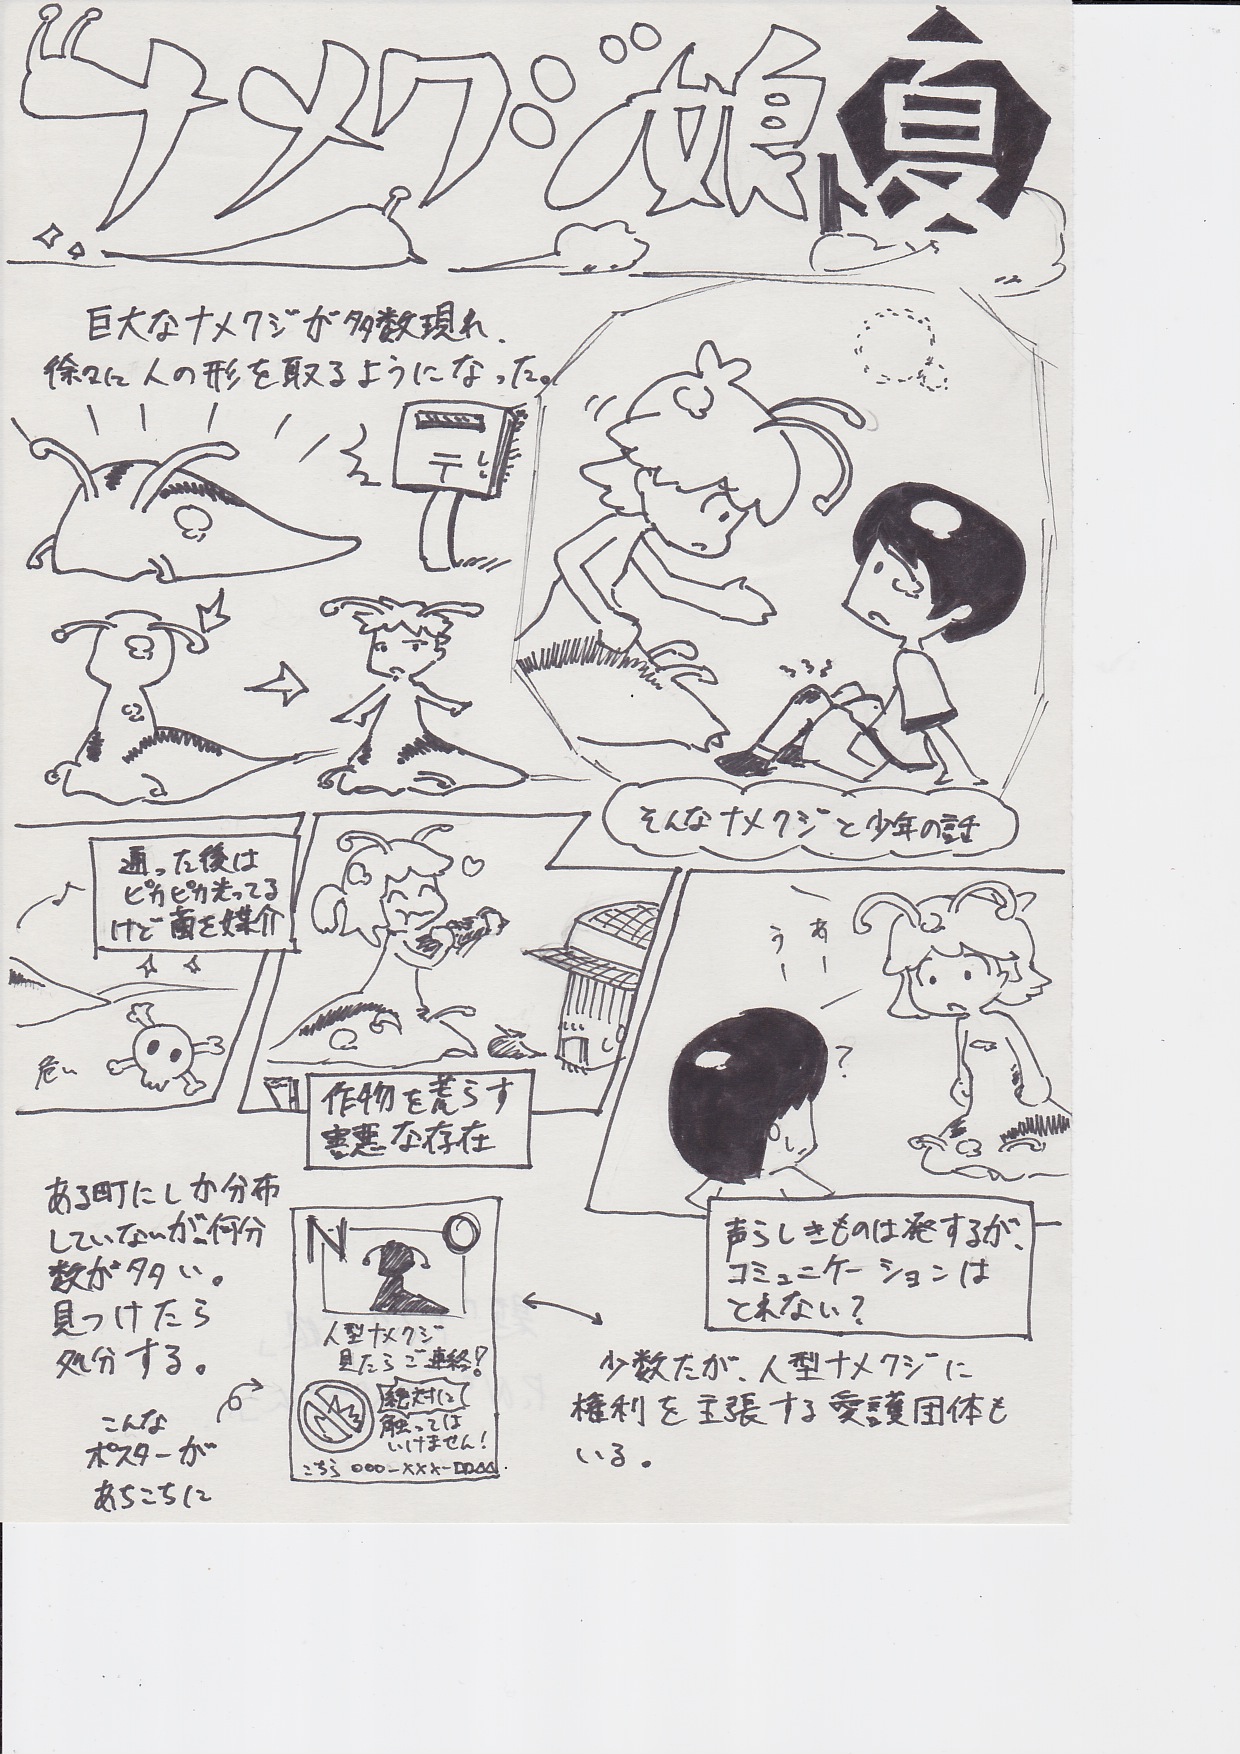 ナメクジ娘ト夏
巨大なナメクジが多数現れ、
徐々に人の形を取るようになった。
〒
そんなナメクジと少年の話
通った後は
ピカピカ光ってる
けど菌を媒介
危い
作物を荒らす
害悪な存在
あー
うー
?
声らしきものは発するが、
コミュニケーションは
とれない?
ある町にしか分布
していないが、何分
数が多い。
見つけたら
処分する。
こんな
ポスターが
あちこちに
NO
人型ナメクジ
見たらご連絡!
絶対に
触っては
いけません!
こちら 000-XXX-□□△△
少数だが、人型ナメクジに
権利を主張する愛護団体も
いる。